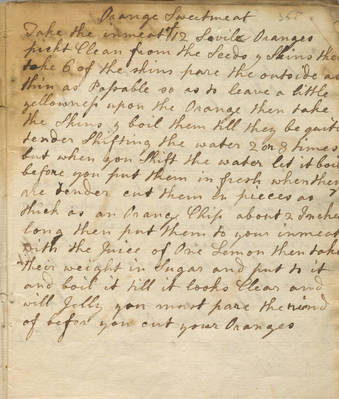 Orange Sweetmeat
Take the inmeat of 12 Sevile Oranges
pickt Clean from the Seeds & Skins then
take 6 of the skins pare the outside as
thin as Possable so as to leave a little
yellowness upon the Orange then take
the Skins & boil them till they be quite
tender Shifting the water 2 or 3 times
but when you Shift the water let it boil
before you put them in fresh when they
are tender cut them in pieces as
thick as an Orange Chip about 2 Inches
long then put them to your inmeat
with the Juice of One Lemon then take
their weight in Sugar and put to it
and boil it till it looks Clear and
will Jelly you must pare the rind
of befor you cut your Oranges